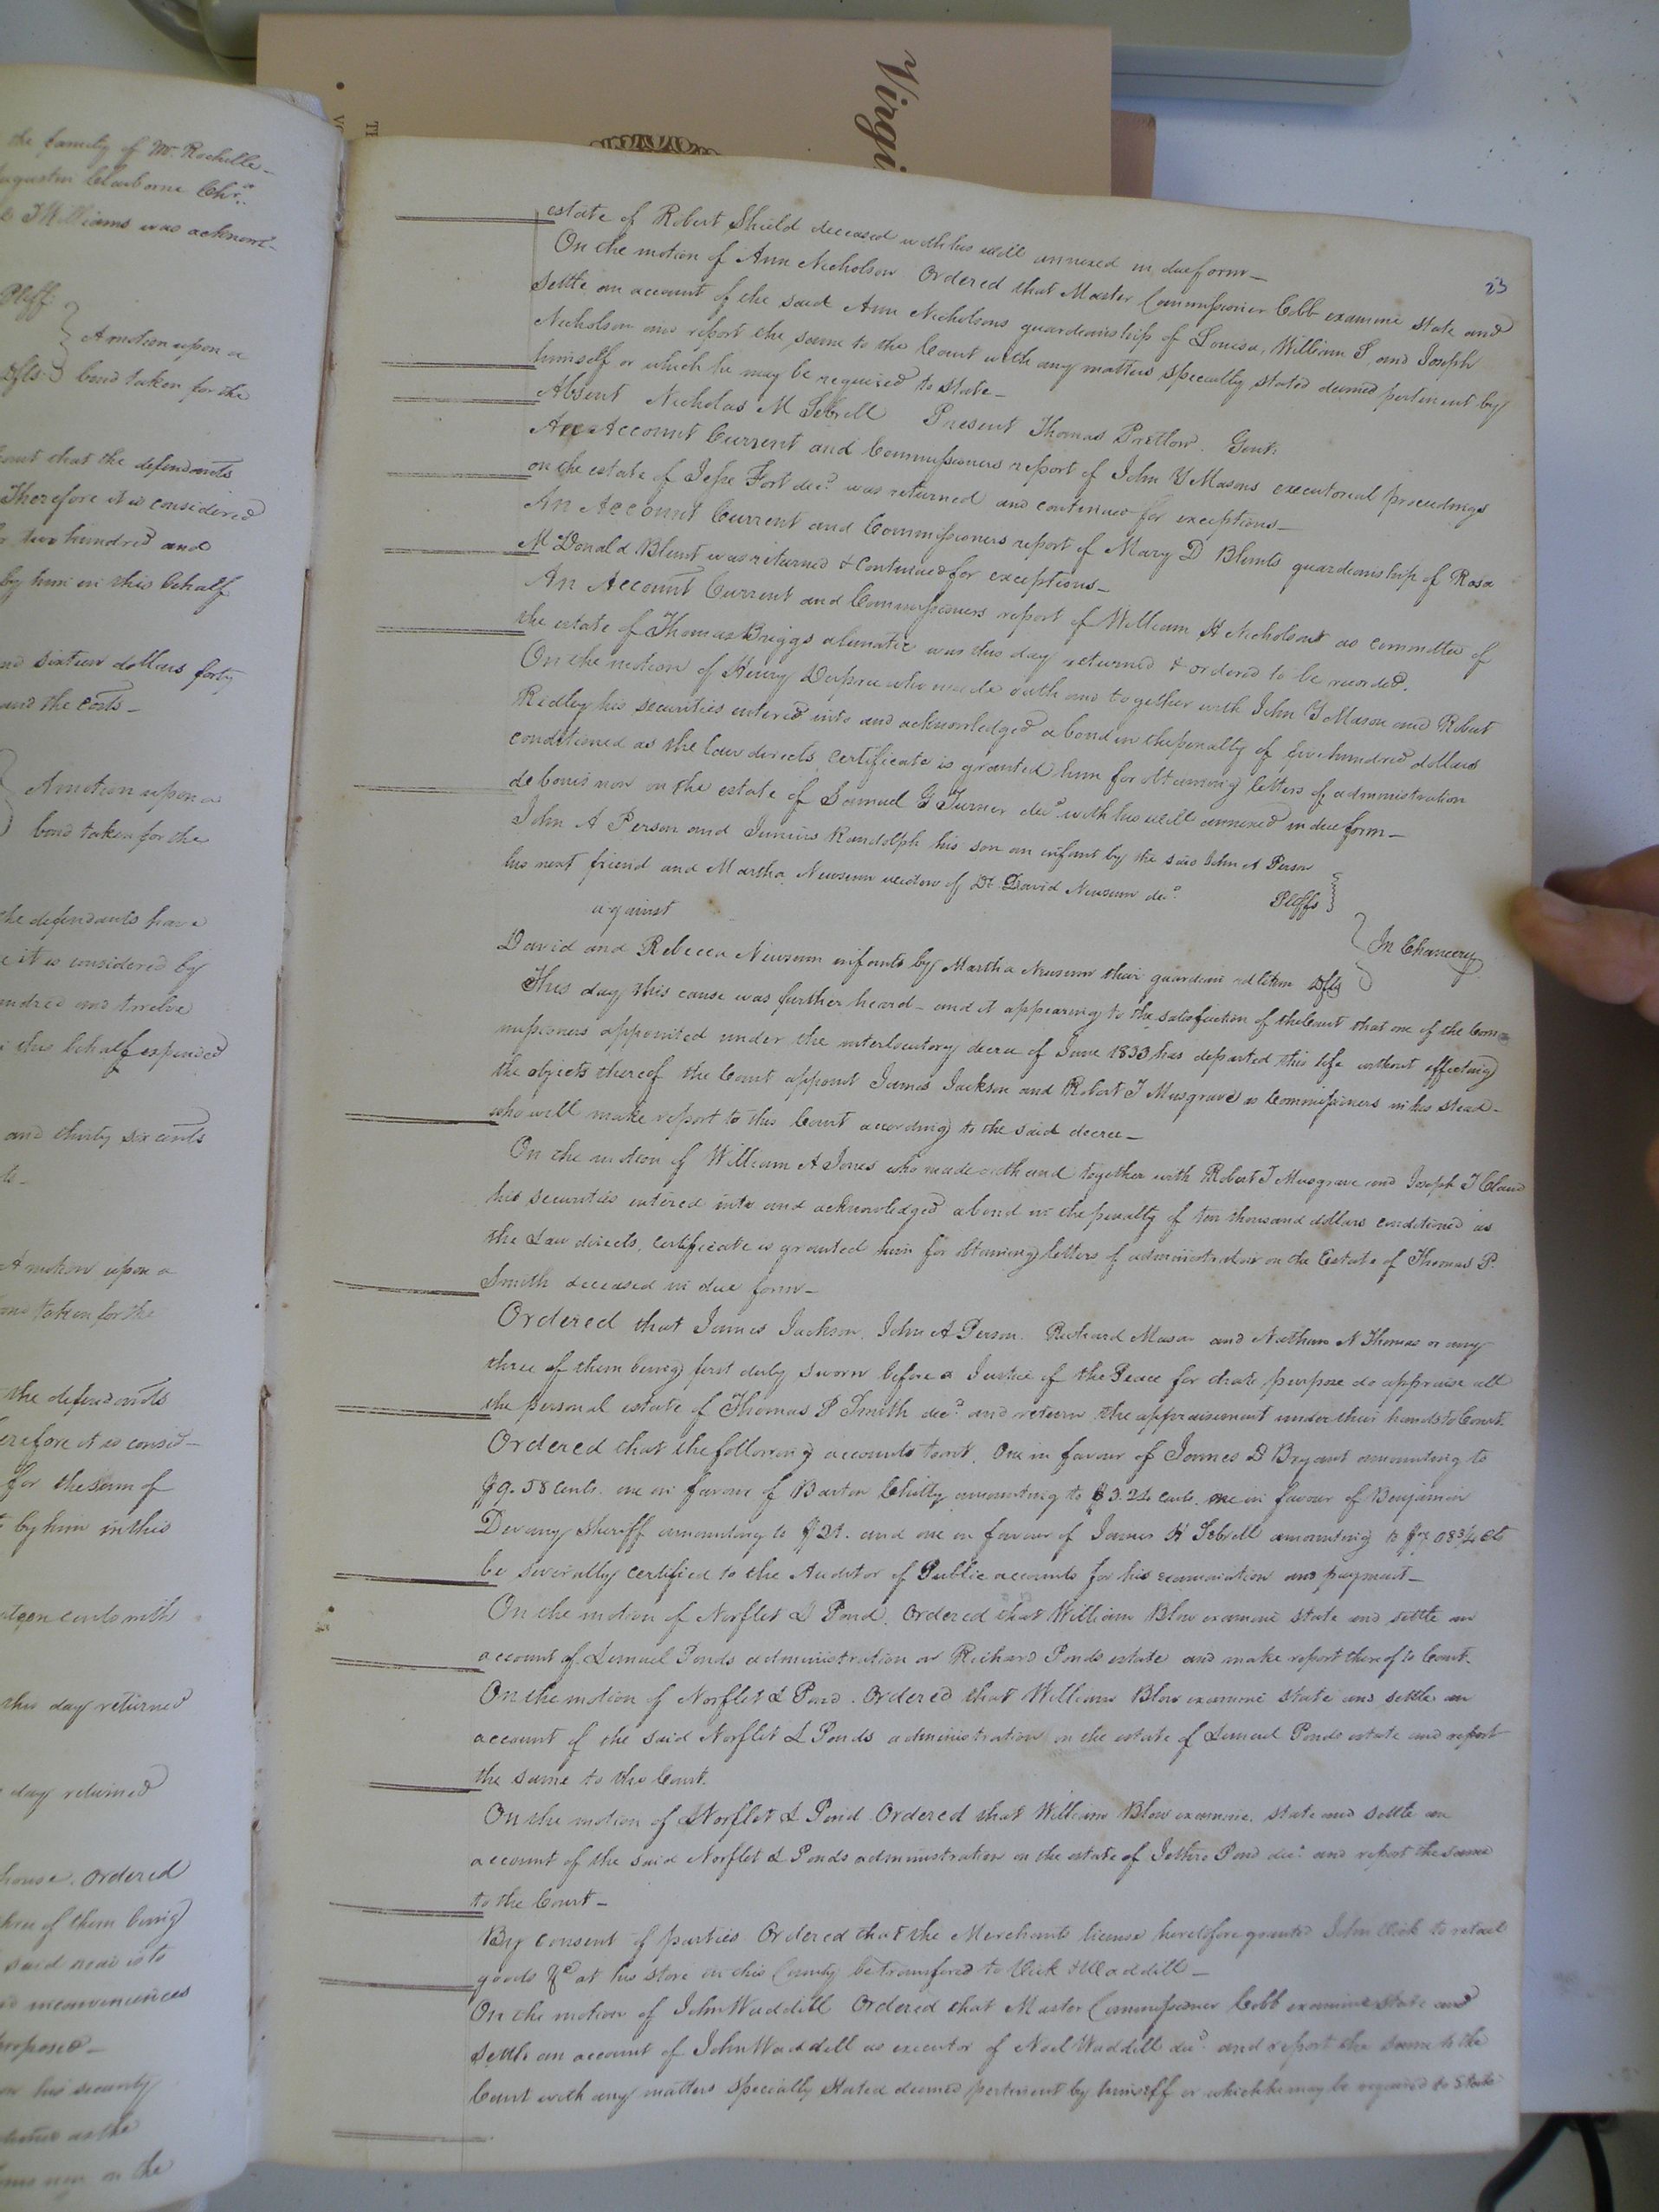 Virgi
the family of Mr. Rochelle
Augustin Claiborne Chr.
Williams was acknowl-
Pltff.
A motion upon a
Dfts. bond taken for the
Court that the defendants
Therefore it is considered
two hundred and
by him in this behalf
and sixteen dollars forty
and the costs
A motion upon a
bond taken for the
the defendants have
it is considered by
hundred and twelve
this behalf expended
and thirty six cents
A motion upon a
bond taken for the
the defendants
Therefore it is consid-
for the sum of
by him in this
cents with
this day returned
day returned
house. Ordered
three of them being
said road is to
inconveniences
proposed
his security
as the
non on the
23
estate of Robert Shield deceased with his will annexed in due form
On the motion of Ann Nicholson Ordered that Master Commissioner Cobb examine state and
settle an account of the said Ann Nicholsons guardianship of Louisa, William S and Joseph
Nicholson and report the same to the Court with any matters specially stated deemed pertinent by
himself or which he may be required to state
Absent Nicholas M Sebrell Present Thomas Pretlow. Gent:
An Account Current and Commissioners report of John Y Masons executorial proceedings
on the estate of Jesse Fort decd was returned and continued for exceptions
An Account Current and Commissioners report of Mary D Blunts guardianship of Rosa
M Donald Blunt was returned & continued for exceptions
An Account Current and Commissioners report of William H Nicholsons as committee of
the estate of Thomas Briggs a lunatic was this day returned & ordered to be recorded.
On the motion of Henry Dupree who made oath and together with John Y Mason and Robert
Ridley his securities entered into and acknowledged a bond in the penalty of five hundred dollars
conditioned as the law directs, certificate is granted him for obtaining letters of administration
de bonis non on the estate of Samuel G Turner decd with his will annexed in due form
John A Person and Junius Randolph his son an infant by the said John A Person
his next friend and Martha Newsum widow of Dr David Newsum decd Pltffs
against In Chancery
David and Rebecca Newsum infants by Martha Newsum their guardian ad litem Dfts
This day this cause was further heard and it appearing to the satisfaction of the Court that one of the Com-
missioners appointed under the interlocutory decree of June 1833 has departed this life without effecting
the objects thereof the Court appoint James Jackson and Robert T Musgrave as Commissioners in his stead
who will make report to this Court according to the said decree
On the motion of William A Jones who made oath and together with Robert T Musgrave and Joseph T Claud
his securities entered into and acknowledged a bond in the penalty of ten thousand dollars conditioned as
the Law directs, certificate is granted him for obtaining letters of administration on the Estate of Thomas P.
Smith deceased in due form
Ordered that James Jackson, John A Person, Richard Mason and Nathan N Thomas or any
three of them being first duly sworn before a Justice of the Peace for that purpose do appraise all
the personal estate of Thomas P Smith decd and return the appraisement under their hands to Court.
Ordered that the following accounts towit, One in favour of James D Bryant amounting to
$9.58 cents. one in favour of Barton Chitty amounting to $3.24 cents. one in favour of Benjamin
Devany Sheriff amounting to $21. and one in favour of James H Sebrell amounting to $7.08 3/4 cts
be severally certified to the Auditor of Public accounts for his examination and payment
On the motion of Norflet L Pond. Ordered that William Blow examine state and settle an
account of Lemuel Ponds administration on Richard Ponds estate and make report thereof to Court.
On the motion of Norflet L Pond. Ordered that William Blow examine state and settle an
account of the said Norflet L Ponds administration on the estate of Lemuel Ponds estate and report
the same to the Court.
On the motion of Norflet L Pond Ordered that William Blow examine, state and settle an
account of the said Norflet L Ponds administration on the estate of Jethro Pond decd and report the same
to the Court
By consent of parties Ordered that the Merchants license heretofore granted John Vick to retail
goods &c at his store in this County be transfered to Vick & Waddill
On the motion of John Waddill Ordered that Master Commissioner Cobb examine state and
settle an account of John Waddill as executor of Noel Waddill decd and report the same to the
Court with any matters specially stated deemed pertinent by himself or which he may be required to state